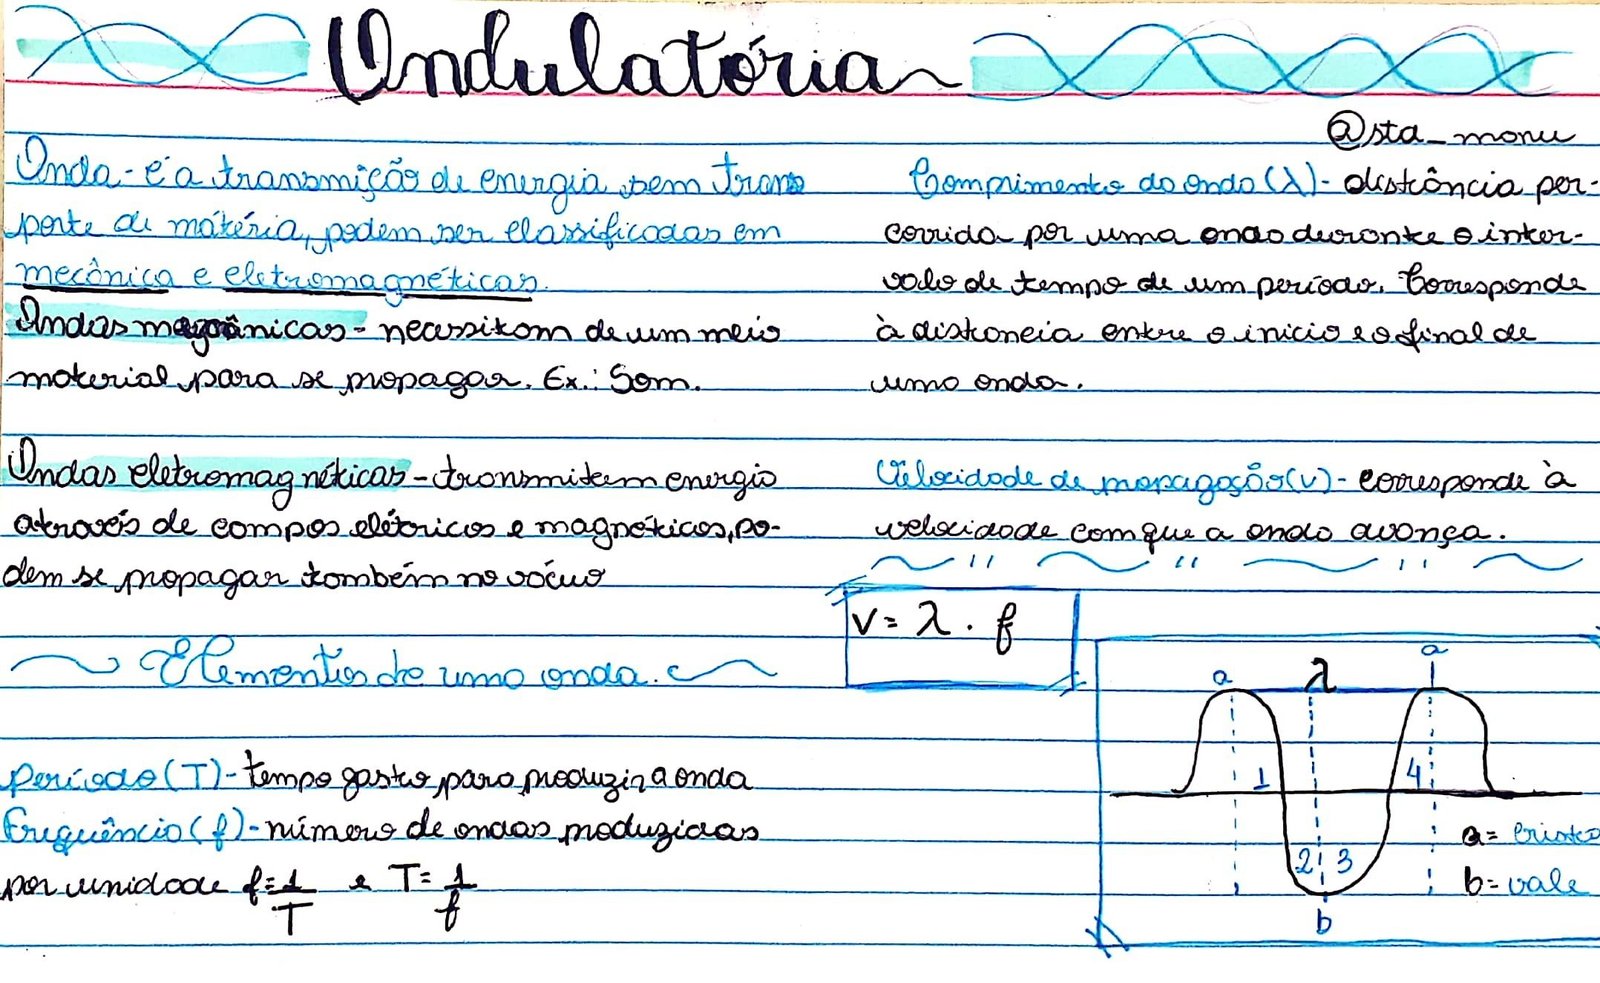 Ondulatória
@sta_monu
Onda - é a transmição de energia sem trans
porte de matéria, podem ser classificadas em
mecânica e eletromagnéticas.
Ondas mecânicas - necessitam de um meio
material para se propagar. Ex.: Som.
Ondas eletromagnéticas - transmitem energia
através de campos elétricos e magnéticos, po-
dem se propagar também no vácuo
Elementos de uma onda.
Período (T) - tempo gasto para produzir a onda
Frequência (f) - número de ondas produzidas
por unidade f = 1/T e T = 1/f
Comprimento da onda (λ) - distância per-
corrida por uma onda durante o inter-
valo de tempo de um período. Corresponde
à distancia entre o inicio e o final de
uma onda.
Velocidade de propagação (v) - corresponde à
velocidade com que a onda avança.
V = λ . f
a λ a
1 4
2 3
b
a = crista
b = vale